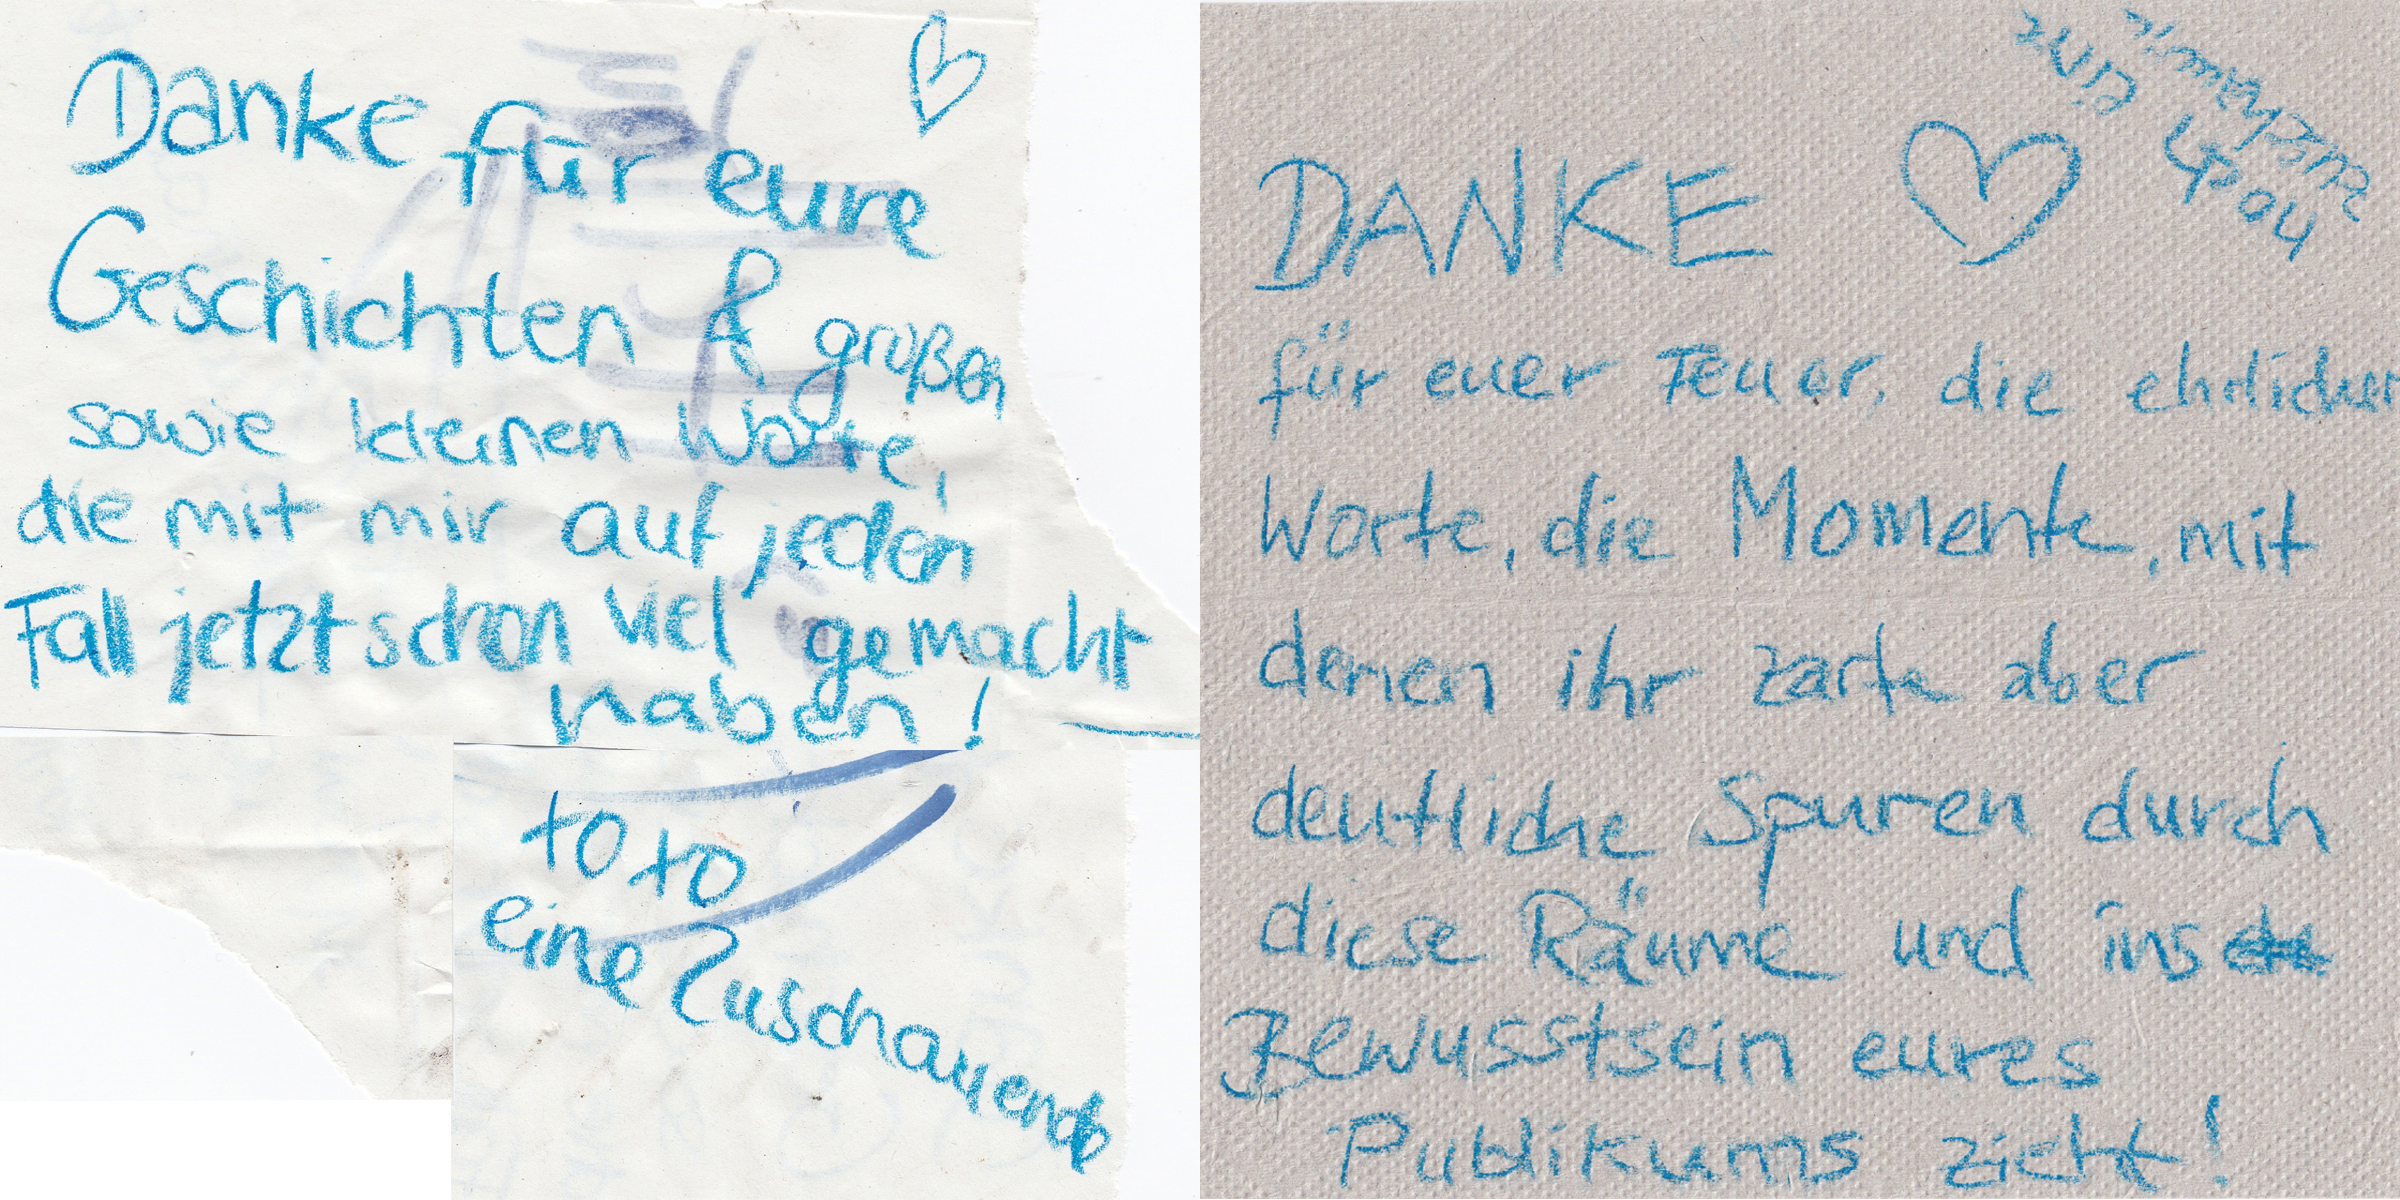 Danke für eure
Geschichten & großen
sowie kleinen Worte,
die mit mir auf jeden
Fall jetzt schon viel gemacht
haben!
xoxo
eine Zuschauende
DANKE
für euer Feuer, die ehrlichen
Worte, die Momente, mit
denen ihr zarte aber
deutliche Spuren durch
diese Räume und ins
Bewusstsein eures
Publikums zieht!
noch eine